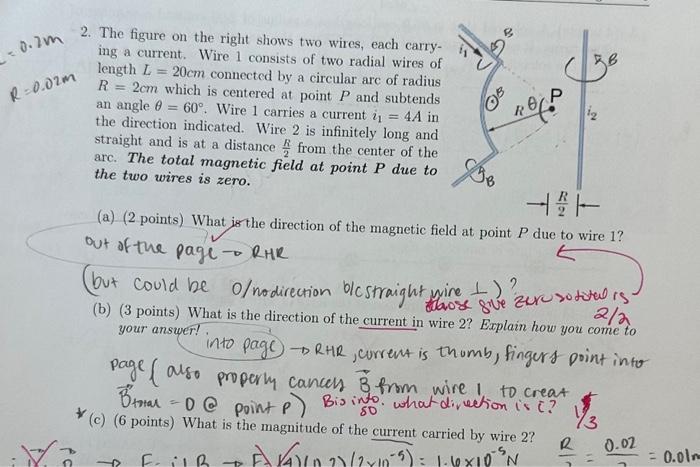 L = 0.2m
R = 0.02m
2. The figure on the right shows two wires, each carry-
ing a current. Wire 1 consists of two radial wires of
length L = 20cm connected by a circular arc of radius
R = 2cm which is centered at point P and subtends
an angle θ = 60°. Wire 1 carries a current i₁ = 4A in
the direction indicated. Wire 2 is infinitely long and
straight and is at a distance R/2 from the center of the
arc. The total magnetic field at point P due to
the two wires is zero.
i₁
B
B
B
B
R
θ
P
i₂
R/2
(a) (2 points) What is the direction of the magnetic field at point P due to wire 1?
out of the page → RHR
(but could be 0/no direction b/c straight wire ⊥)?
those give zero so total is
2/2
(b) (3 points) What is the direction of the current in wire 2? Explain how you come to
your answer!
into page → RHR, current is thumb, fingers point into
page (also properly cancels B from wire 1 to creat
B total = 0 @ point P)
B is into. so what direction is i?
1/3
(c) (6 points) What is the magnitude of the current carried by wire 2?
R/2 = 0.02 = 0.01m
(4)(0.2)(2×10⁻⁵) = 1.6×10⁻⁵N